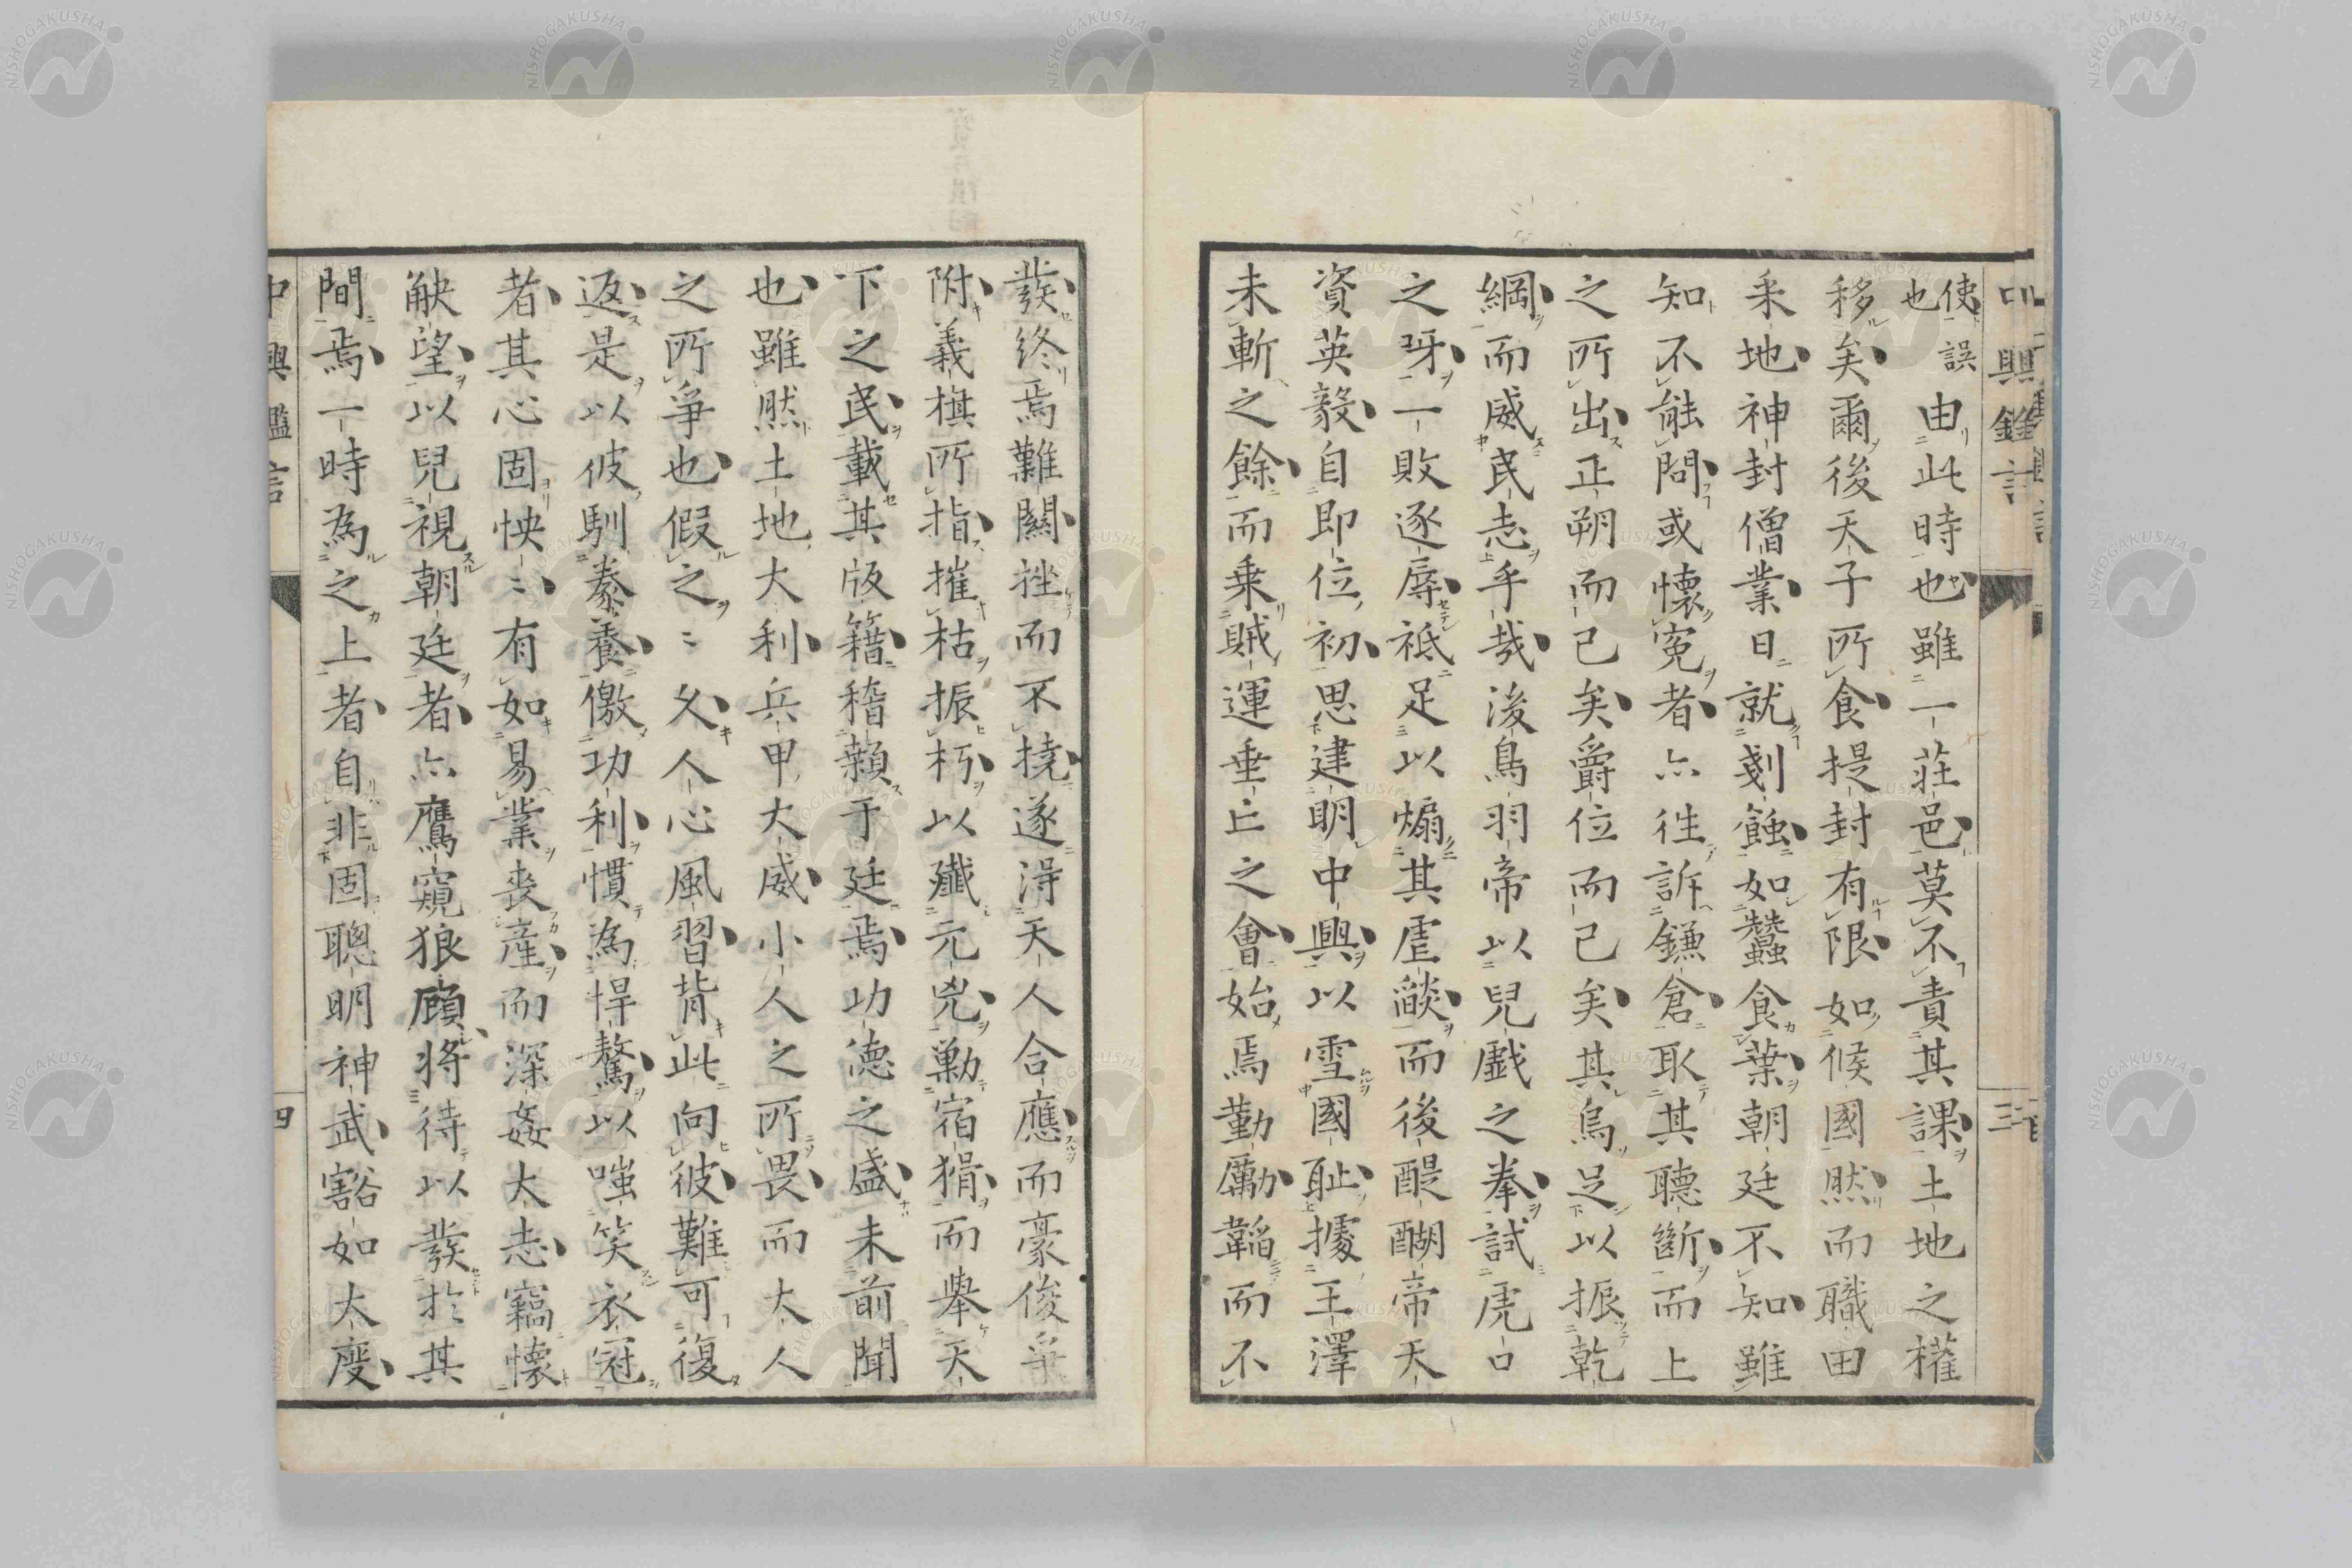 使誤也由此時也雖一莊邑莫不責其課土地之權
移矣爾後天子所食提封有限如候國然而職田
釆地神封僧業日就剗蝕如蠶食葉朝廷不知雖
知不能問或懷寃者亦往訴鎌倉取其聽斷而上
之所出正朔而已矣爵位而已矣其烏足以振乾
綱而威民志乎哉後鳥羽帝以兒戲之拳試虎口
之呀一敗逐辱祗足以煽其虐燄而後醍醐帝天
資英毅自即位初思建明中興以雪國恥據王澤
未斬之餘而乗賊運垂亡之會始焉勤勵韜而不
發終焉難關挫而不撓遂得天人合應而豪俊爭
附義旗所指摧枯振朽以殲元兇勦宿猾而舉天
下之民載其版籍稽顙于廷焉功德之盛未前聞
也雖然土地大利兵甲大威小人之所畏而大人
之所爭也假之〻久人心風習背此向彼難可復
返是以彼馴豢養儌功利慣為悍驁以嗤笑衣冠
者其心固怏〻有如易業喪產而深姦大志竊懷
觖望以兒視朝廷者亦鷹窺狼顧將待以發於其
間焉一時為之上者自非固聰明神武豁如大度
中興鑑言
三
四